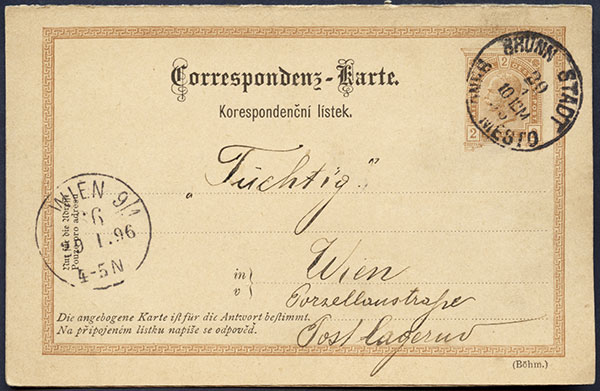 Correspondenz-Karte.
Korespondenční lístek.
2 2
2
BRÜNN STADT
MĚSTO
„Tüchtig"
WIEN 9/1
6
I. 96
4-5N
Nur für die Adresse
Pouze pro adresu
in
v
Wien
Porzellanstraße
Postlagernd
Die angebogene Karte ist für die Antwort bestimmt.
Na připojeném lístku napiše se odpověď.
(Böhm.)